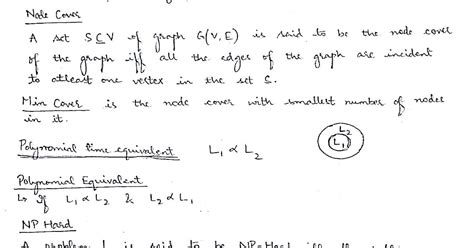 Node Cover
A set S ⊆ V of graph G(V, E) is said to be the node cover
of the graph iff all the edges of the graph are incident
to atleast one vertex in the set S.
Min Cover is the node cover with smallest number of nodes
in it.
Polynomial time equivalent L₁ ∝ L₂
L₂
L₁
Polynomial Equivalent
↳ If L₁ ∝ L₂ & L₂ ∝ L₁
NP Hard
A problem L is said to be NP-Hard iff